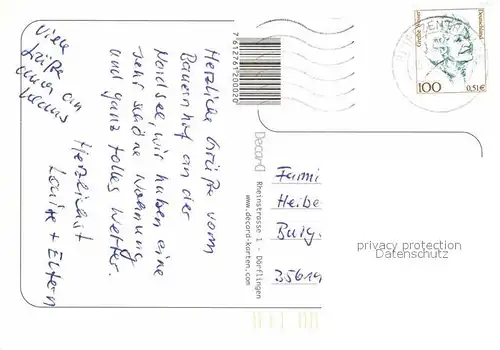 Herzliche Grüße vom
Bauernhof an der
Nordsee, wir haben eine
sehr schöne Wohnung
und ganz tolles Wetter.
Herzlichst
Louise + Eltern
Viele
Grüße
an
7612761200020
Decard
Rheinstrasse 1 - Dörflingen
www.decard-karten.com
Deutschland
100
0,51€
Fami
Heibe
Burg.
35614
privacy protection
Datenschutz